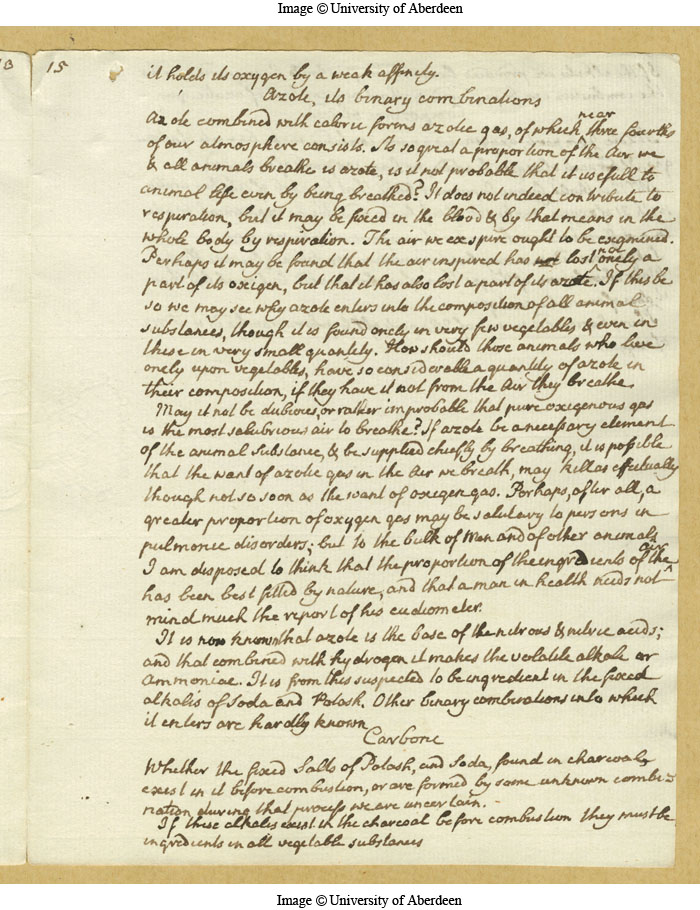 Image © University of Aberdeen
13
15
it holds its oxygen by a weak affinity.
Azote, its binary combinations
near
Azote combined with caloric forms azotic gas, of which ^ three fourths
of our atmosphere consists. As so great a proportion of the Air we
& all animals breathe is azote, is it not probable that it is usefull to
animal life even by being breathed? It does not indeed contribute to
respiration, but it may be fixed in the blood & by that means in the
whole body by respiration. The air we exspire ought to be examined.
Perhaps it may be found that the air inspired has not lost ^ not onely a
part of its oxigen, but that it has also lost a part of its azote. If this be
so we may see why azote enters into the composition of all animal
substances, though it is found onely in very few vegetables & even in
these in very small quantity. How should those animals who live
onely upon vegetables, have so considerable a quantity of azote in
their composition, if they have it not from the Air they breathe
May it not be dubious, or rather improbable that pure oxigenous gas
is the most salubrious air to breathe? If azote be a necessary element
of the animal substance, & be supplied chiefly by breathing, it is possible
that the want of azotic gas in the Air we breath, may kill as effectually
though not so soon as the want of oxigen gas. Perhaps, after all, a
greater proportion of oxygen gas may be salutary to persons in
pulmonic disorders; but to the bulk of Men and of other animals
air
I am disposed to think that the proportion of the ingredients of the ^
has been best fitted by nature, and that a man in health needs not
mind much the report of his eudiometer.
It is now known that azote is the base of the nitrous & nitric acids;
and that combined with hydrogen it makes the volatile alkale or
Ammoniac. It is from this suspected to be ingredient in the fixed
alkalis of Soda and Potash. Other binary combinations into which
it enters are hardly known
Carbone
Whether the fixed Salts of Potash, and Soda, found in charcoal,
exist in it before combustion, or are formed by some unknown combi=
nation during that process we are uncertain.
If these alkalis exist in the charcoal before combustion they must be
ingredients in all vegetable substances
Image © University of Aberdeen